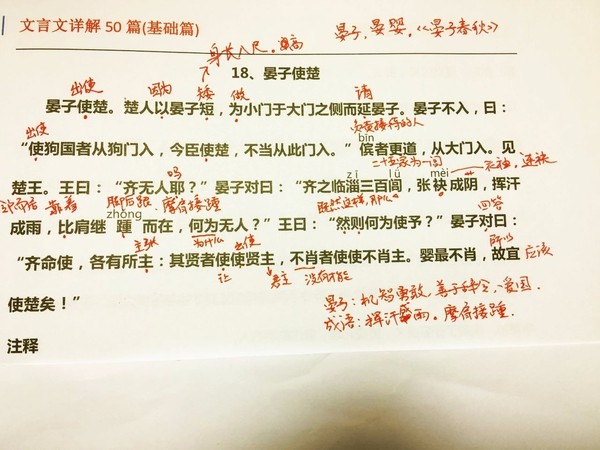 文言文详解50篇(基础篇)
晏子,晏婴,《晏子春秋》
身长八尺。
18、晏子使楚
出使 因为 矮 做 请
晏子使楚。楚人以晏子短，为小门于大门之侧而延晏子。晏子不入，曰：
出使 负责接待的人
bīn
“使狗国者从狗门入，今臣使楚，不当从此门入。”傧者更道，从大门入。见
吗 二十五家为一闾 衣袖，连袂
zī lǘ mèi
楚王。王曰：“齐无人耶？”晏子对曰：“齐之临淄三百闾，张袂成阴，挥汗
靠着 脚后跟 摩肩接踵 既然这样,那么 回答
zhǒng
成雨，比肩继踵而在，何为无人？”王曰：“然则何为使予？”晏子对曰：
主张 为什么 出使 所以
“齐命使，各有所主：其贤者使使贤主，不肖者使使不肖主。婴最不肖，故宜 应该
让 君主 没有才能
使楚矣！”
晏子：机智勇敢，善于辞令，爱国.
成语：挥汗如雨。摩肩接踵.
注释